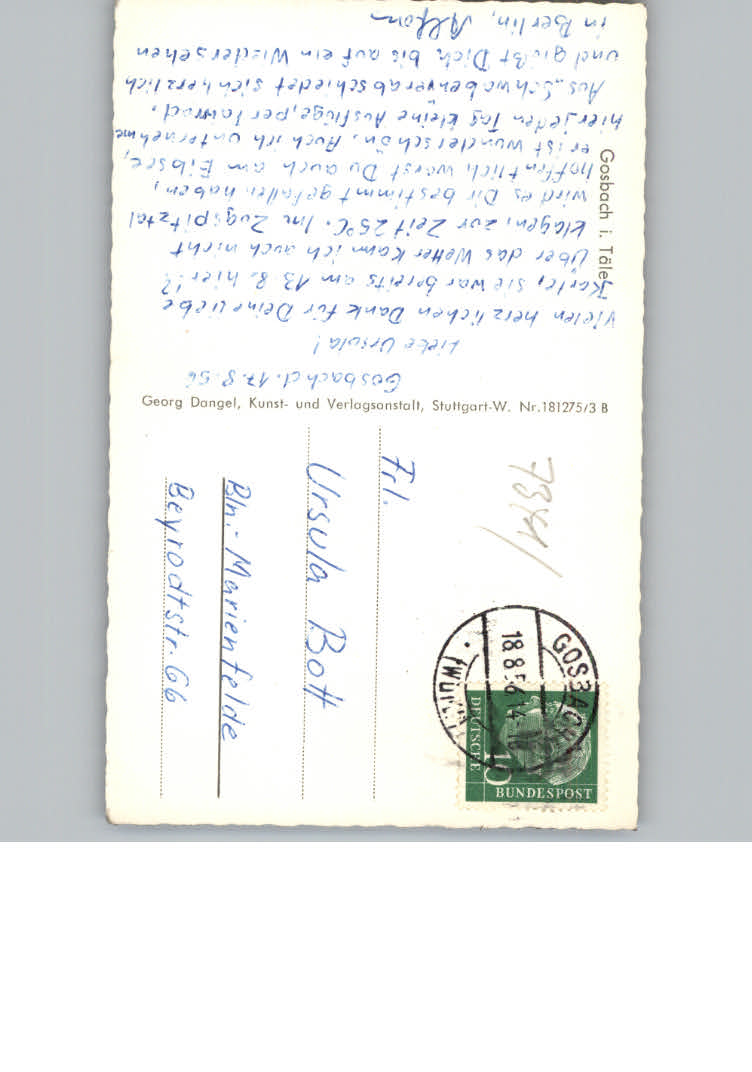 Gosbach d. 17.8.56
Liebe Ursula!
Vielen herzlichen Dank für Deine liebe
Karte, sie war bereits am 13.8. hier!?
Über das Wetter kann ich auch nicht
klagen, zur Zeit 25°C. Im Zugspitztal
wird es Dir bestimmt gefallen haben,
hoffentlich warst Du auch am Eibsee,
er ist wunderschön. Auch ich unternehme
hier jeden Tag kleine Ausflüge, per
Aus „Schwaben verabschiedet sich herzlich
und grüßt Dich, bis auf ein Wiedersehen
in Berlin, Alfons
Gosbach i. Täle
Georg Dangel, Kunst- und Verlagsanstalt, Stuttgart-W. Nr.181275/3 B
Frl.
Ursula Bott
Bln.-Marienfelde
Beyrodtstr. 66
GOSBACH
18.8.56 14
(WÜRTT)
10
DEUTSCHE
BUNDESPOST